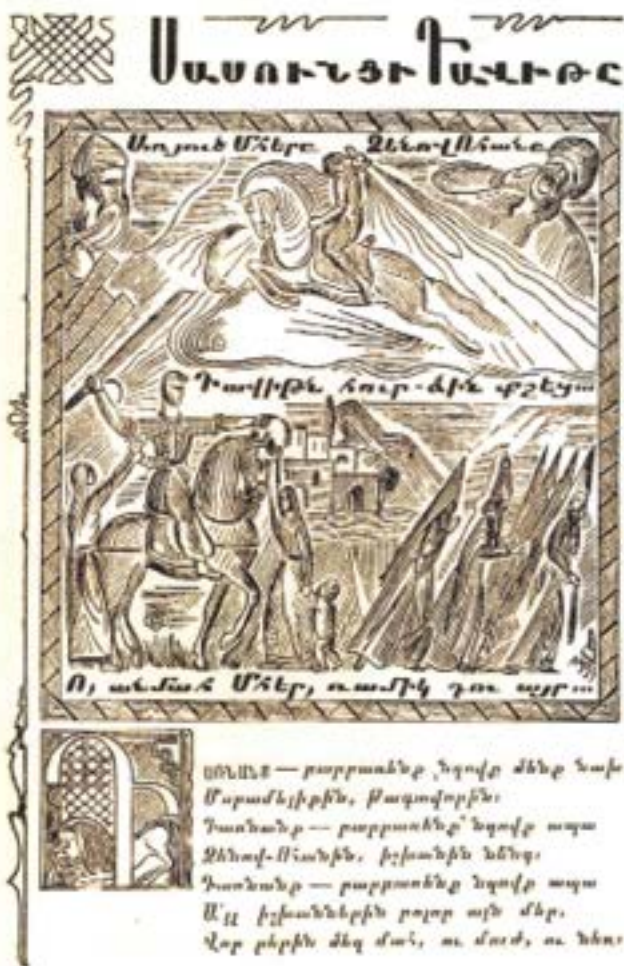 Սասունցի Դավիթը
Առյուծ Մհերը Ձենով Ոհանը
Դավիթն հուր-ձին
Ո, անմահ Մհեր, ռամիկ դու այր...
ԴԱՌՆԱՆՔ — բարբառենք նզովք մենք նախ
Մսրամելիքին, թագավորին:
Դառնանք — բարբառենք նզովք ապա
Ձենով-Ոհանին, իշխանին նենգ:
Դառնանք — բարբառենք նզովք ապա
Ա՛յլ իշխաններին բոլոր այն մեր,
Վոր բերին մեզ մահ, ու մուժ, ու